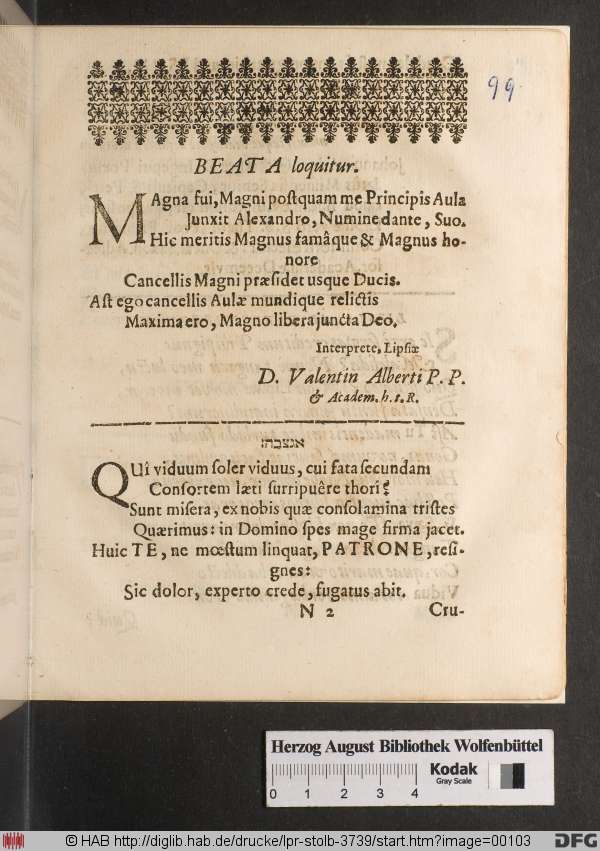 99
BEATA loquitur.
MAgna fui, Magni poſtquam me Principis Aula
Junxit Alexandro, Numine dante, Suo.
Hic meritis Magnus famâque & Magnus ho-
nore
Cancellis Magni præſidet usque Ducis.
Aſt ego cancellis Aulæ mundique relictis
Maxima ero, Magno libera juncta Deo.
Interprete, Lipſiæ
D. Valentin Alberti P. P.
& Academ. h. t. R.
QUî viduum ſoler viduus, cui fata ſecundam
Conſortem læti ſurripuêre thori?
Sunt miſera, ex nobis quæ conſolamina triſtes
Quærimus: in Domino ſpes mage firma jacet.
Huic TE, ne mœſtum linquat, PATRONE, reſi-
gnes:
Sic dolor, experto crede, fugatus abit.
N 2 Cru-
Herzog August Bibliothek Wolfenbüttel
0 1 2 3 4
Kodak
Gray Scale
© HAB http://diglib.hab.de/drucke/lpr-stolb-3739/start.htm?image=00103
DFG